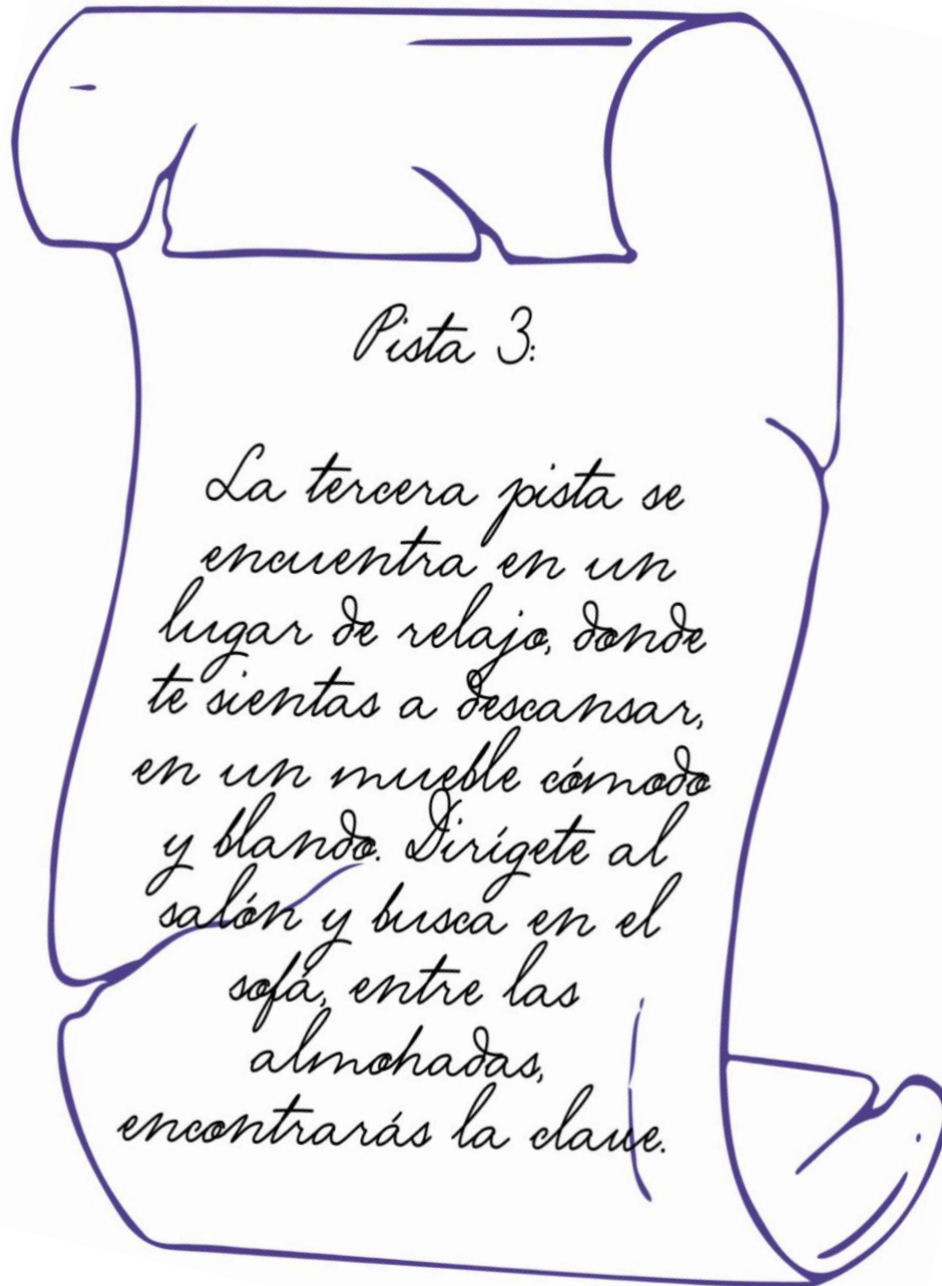 Pista 3:
La tercera pista se
encuentra en un
lugar de relajo, donde
te sientas a descansar,
en un mueble cómodo
y blando. Dirígete al
salón y busca en el
sofá, entre las
almohadas,
encontrarás la clave.